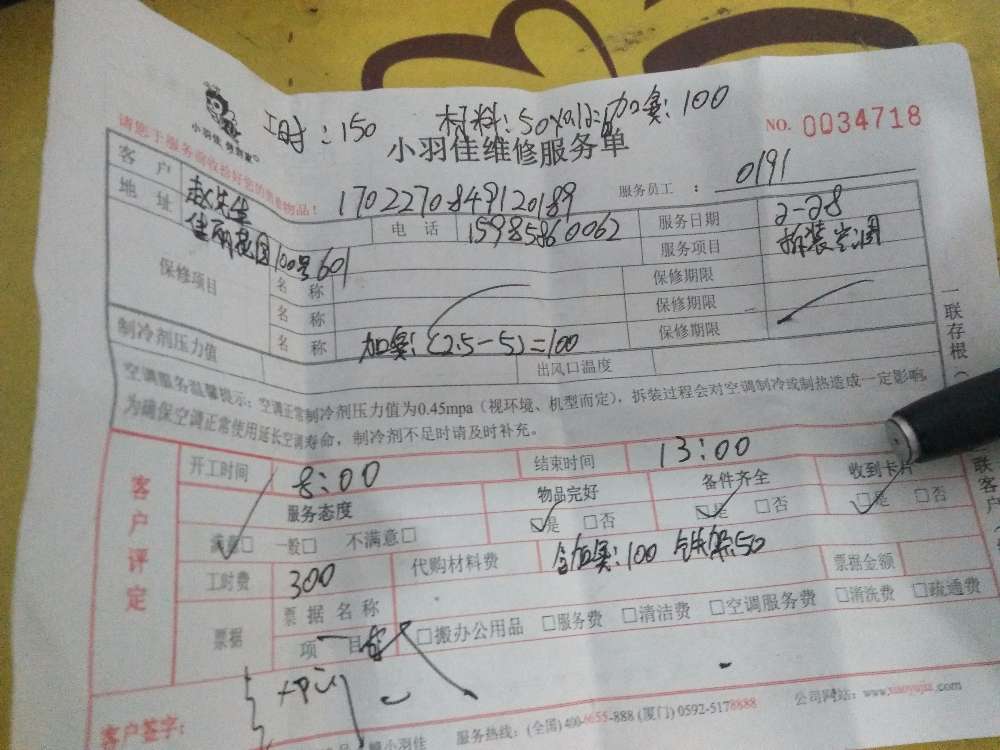 工时：150 材料：50 加氟：100
小羽佳
小羽佳维修服务单
NO. 0034718
请您于服务前收拾好您的贵重物品！
1702270849120189
服务员工 ： 0191
客户 赵先生 电话 15985860062 服务日期 2-28
地址 佳丽花园100号601 服务项目 拆装空调
保修项目 名称 保修期限
名称 保修期限
名称 保修期限
加氟：(2.5-5)=100
制冷剂压力值 出风口温度
空调服务温馨提示：空调正常制冷剂压力值为0.45mpa（视环境、机型而定），拆装过程会对空调制冷或制热造成一定影响，
为确保空调正常使用延长空调寿命，制冷剂不足时请及时补充。
一联存根（
联客户
客户评定
开工时间 8:00 结束时间 13:00
服务态度 物品完好 备件齐全 收到卡片
满意□ 一般□ 不满意□ 是 □否 是 □否 □是 □否
工时费 300 代购材料费 含加氟：100 铁架50 票据金额
票据 票据名称
项目 □搬办公用品 □服务费 □清洁费 □空调服务费 □清洗费 □疏通费
客户签字：
服务热线：(全国) 400-6655-888 (厦门) 0592-5178888
公司网站：www.xiaoyujia.com